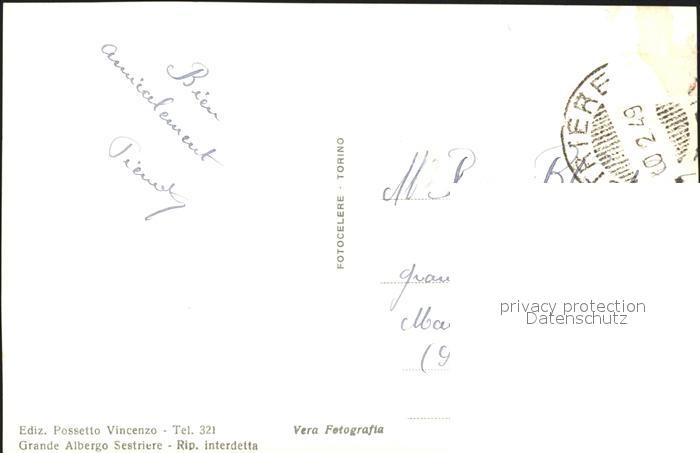 Bien
amicalement
FOTOCELERE - TORINO
RIERE
0 2 49
M
gran
Ma
(9
privacy protection
Datenschutz
Ediz. Possetto Vincenzo - Tel. 321
Grande Albergo Sestriere - Rip. interdetta
Vera Fotografia